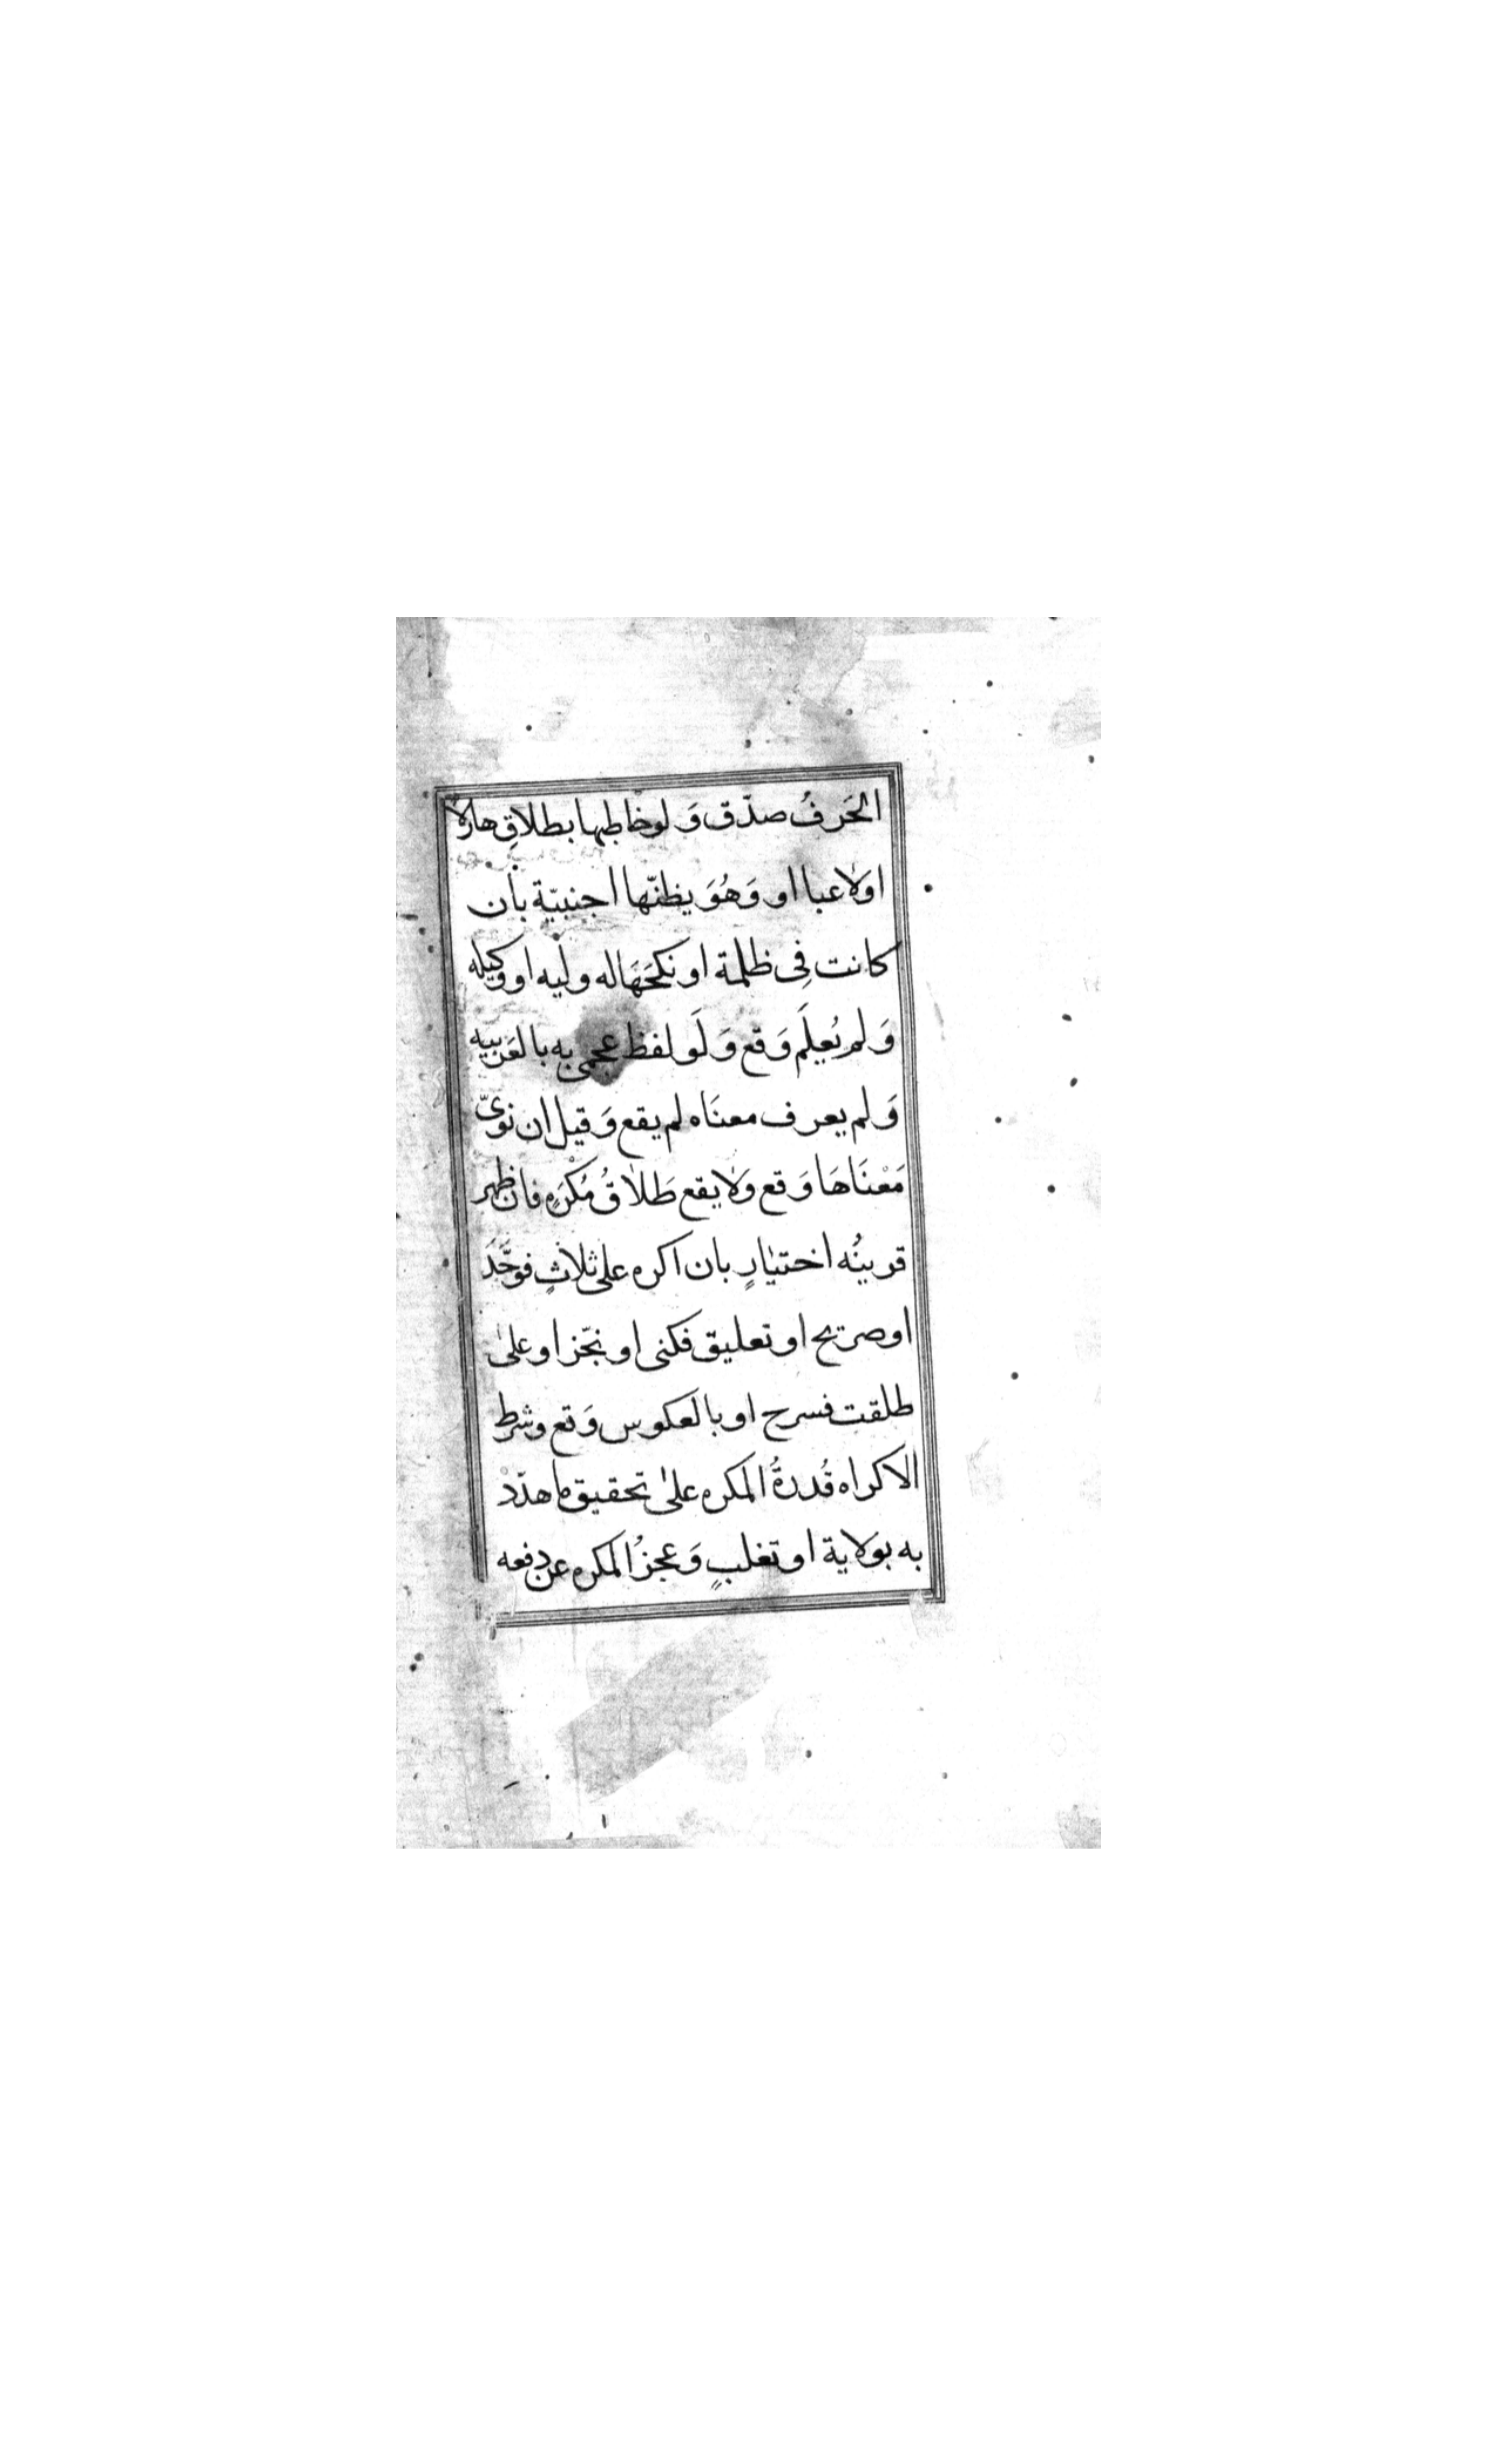 الحَرفُ صدّق وَلو خاطبها بطلاقٍ هازلا
او لاعبا او وَهُوَ يظنّها اجنبيّة بأن
كانت فِى ظلمة او نكحَهَا له وليه او وكيله
وَلم يُعلَم وَقع وَلَو لفظ عجمى به بالعَربيه
وَلم يعرف معنَاه لم يقع وَقيل ان نوىّ
مَعْنَاهَا وَقع وَلا يقع طَلاقُ مُكْرَهٍ فان ظهر
قرينُه اختيَارٍ بان اكره على ثلاثٍ فوَحَّدَ
او صريح او تعليق فكنى او نجّز او على
طلقت فسرح او بالعكوس وَقع وشرط
الاكراه قُدرةُ المكره على تحقيق ما هدّد
به بوَلاية او تغلبٍ وَعجزُ المكره عن دفعه